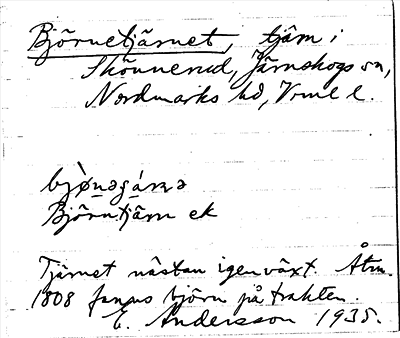 Björnetjärnet, tjärn i
Skönnerud, Järnskogs sn,
Nordmarks hd, Vrml l.
Björntjärn ek
Tjärnet nästan igenväxt. Åtm.
1808 fanns björn på trakten.
E. Andersson 1935.